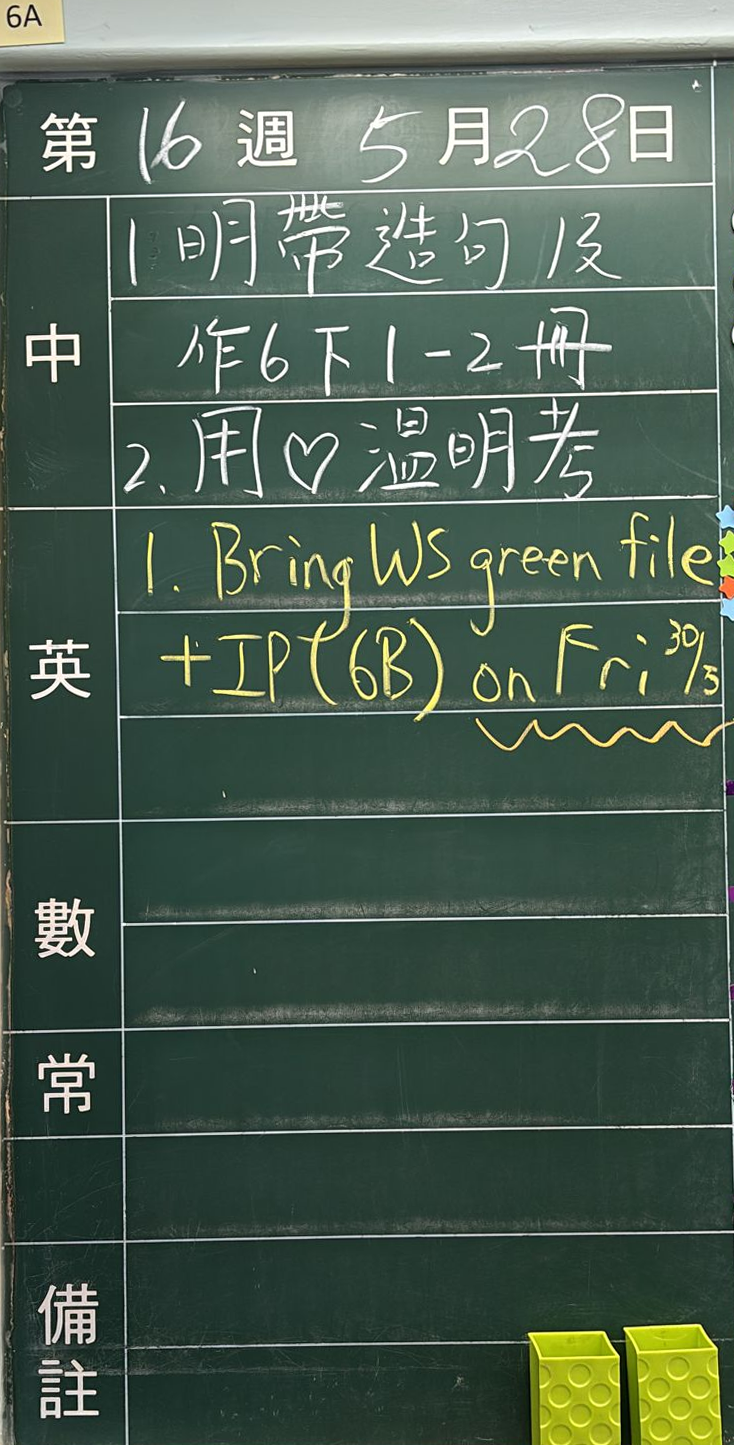 6A
第 16 週 5 月 28 日
中
1 明帶造句及
作6下1-2冊
2. 用♡溫明考
英
1. Bring WS green file
+IPT(6B) on Fri 30/5
數
常
備註